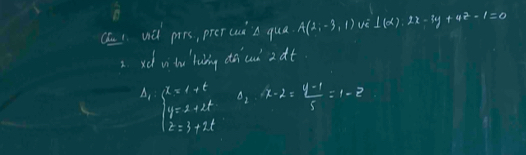 Câu 1. viết ptts, ptct của Δ qua A(2,-3,1) và ⊥(α): 2x-3y+4z-1=0
2. xét vị trí tương đối của 2 đt.
Δ₁: {x=1+t Δ₂: x-2 = (y-1)/5 = 1-z
y=2+2t
z=3+2t